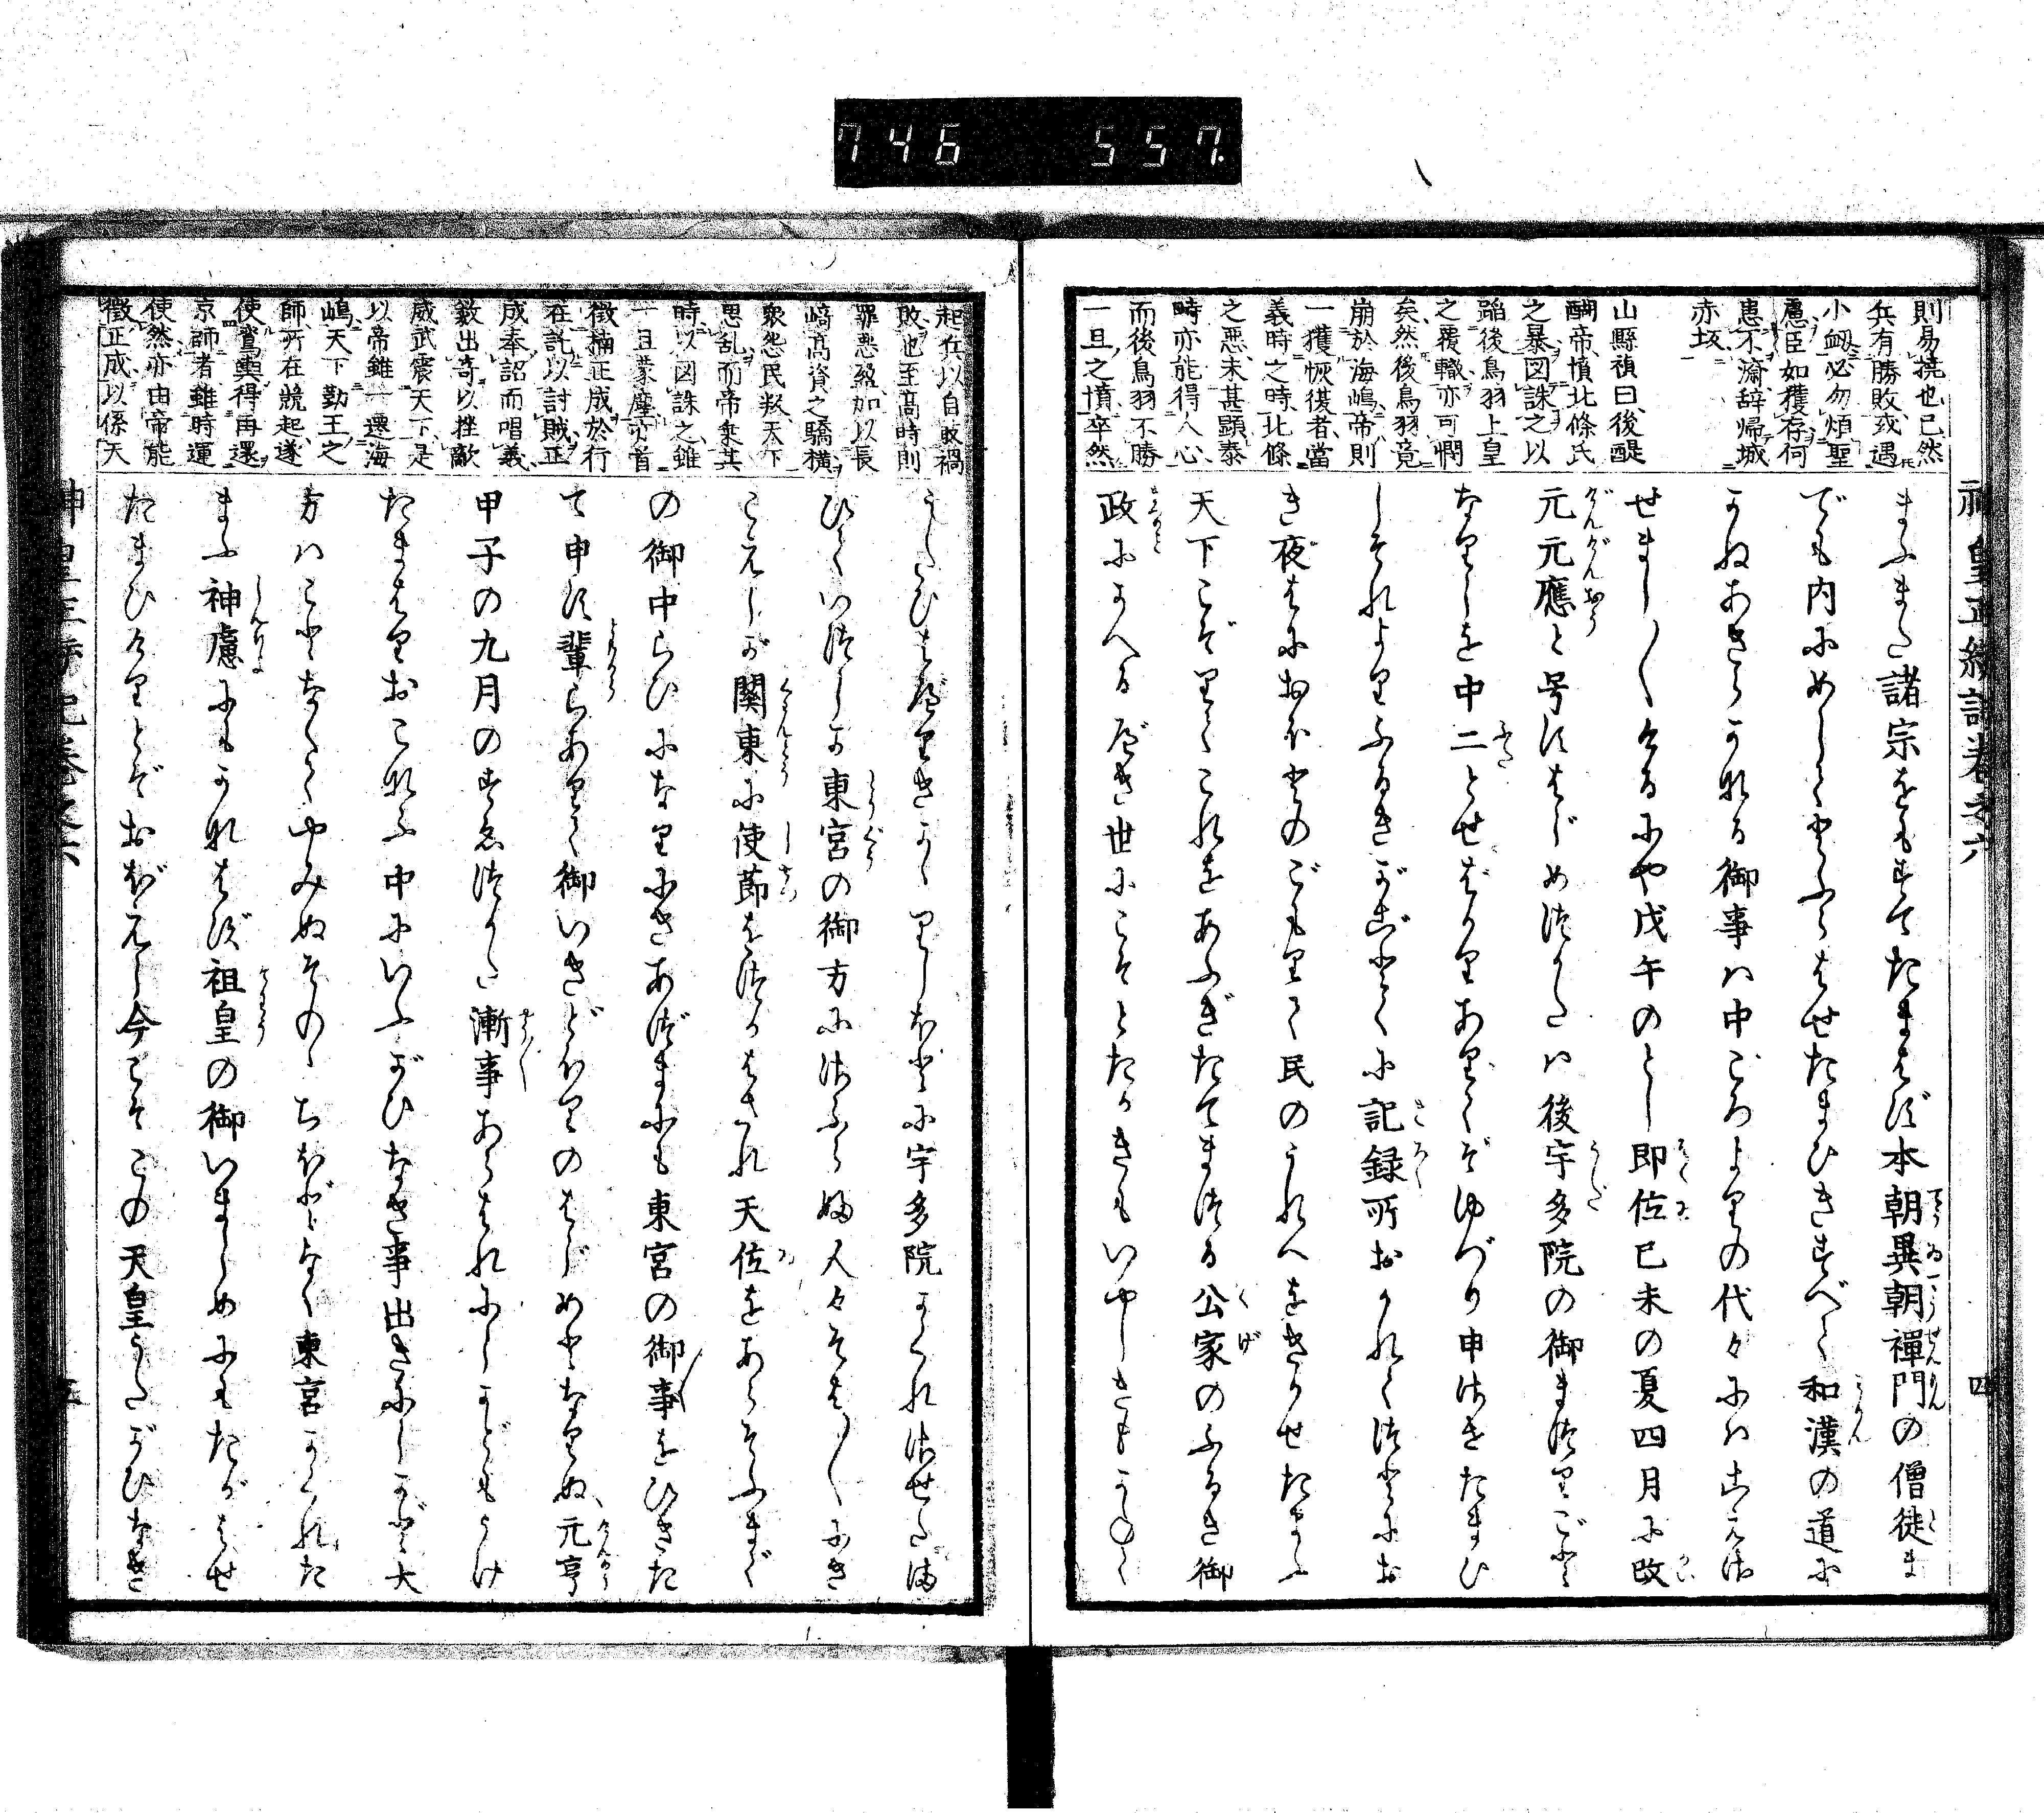 746 557.
神皇正統記巻之六
四
則易撓也已然
兵有勝敗或遇
小衂必勿煩聖
慮臣如獲存何
患不濟辞帰城
赤坂
山縣禎曰後醍
醐帝憤北條氏
之暴図誅之以
蹈後鳥羽上皇
之覆轍亦可憫
矣然後鳥羽竟
崩於海嶋帝則
一獲恢復者當
義時之時北條
之悪未甚顕泰
時亦能得人心
而後鳥羽不勝
一旦之憤卒然
まふまた諸宗をもすてたまはず本朝異朝禅門の僧徒ま
でも内にめしてとふらはせたまひきすべて和漢の道に
かねあきらかなる御事は中ごろよりの代々にはこえさ
せまし〱けるにや戊午のとし即位己未の夏四月に改
元元應と号すはじめつかたは後宇多院の御まつりごと
なりしを中二とせばかりありてぞゆづり申さをたまひ
しそれよりふるきがごとくに記録所おかれてつとにお
き夜はにおほとのごもりて民のうれへをきかせたまふ
天下こぞりてこれをあふぎたてまつる公家のふるき御
政にかへるべき世にこそとたかきもいやしきもかねて
起兵以自敗禍
敗也至高時則
罪悪盈加以長
﨑高資之驕横
衆怨民叛天下
思乱而帝乗其
時以図誅之雖
一旦蒙塵亦首
徴楠正成於行
在託以討賊正
成奉詔而唱義
数出奇以挫敵
威武震天下是
以帝雖一遷海
嶋天下勤王之
師所在競起遂
使鸞輿得再還
京師者雖時運
使然亦由帝能
徴正成以係天
うたひはべりきかゝりしほどに宇多院かくれさせたま
ひていつしか東宮の御方にさふらふ人々そは〱にき
こえしが関東に使節をつかはされ天位をあらそふまで
の御中らひになりにきあづまにも東宮の御事をひきた
て申す輩らありて御いきどほりのはじめとなりぬ元亨
甲子の九月のすゑつかた漸事あらはれにしかどもうけ
たまはりおこなふ中にいふがひなき事出きにしかど大
方はことなくてやみぬそのゝちほどなく東宮かくれた
まふ神慮にもかなはず祖皇の御いましめにもたがはせ
たまひけりとぞおぼえし今こそこの天皇うたがひなき
神皇正統記巻之六
五